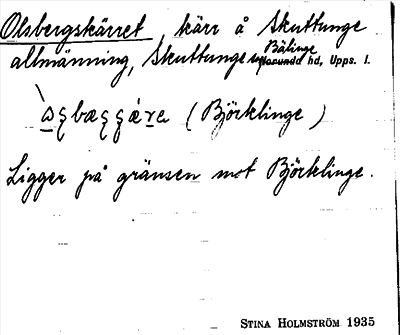 Olsbergskärret, kärr å Skuttunge
allmänning, Skuttunge sn, Bälinge hd, Upps. l.
(Björklinge)
Ligger på gränsen mot Björklinge.
STINA HOLMSTRÖM 1935